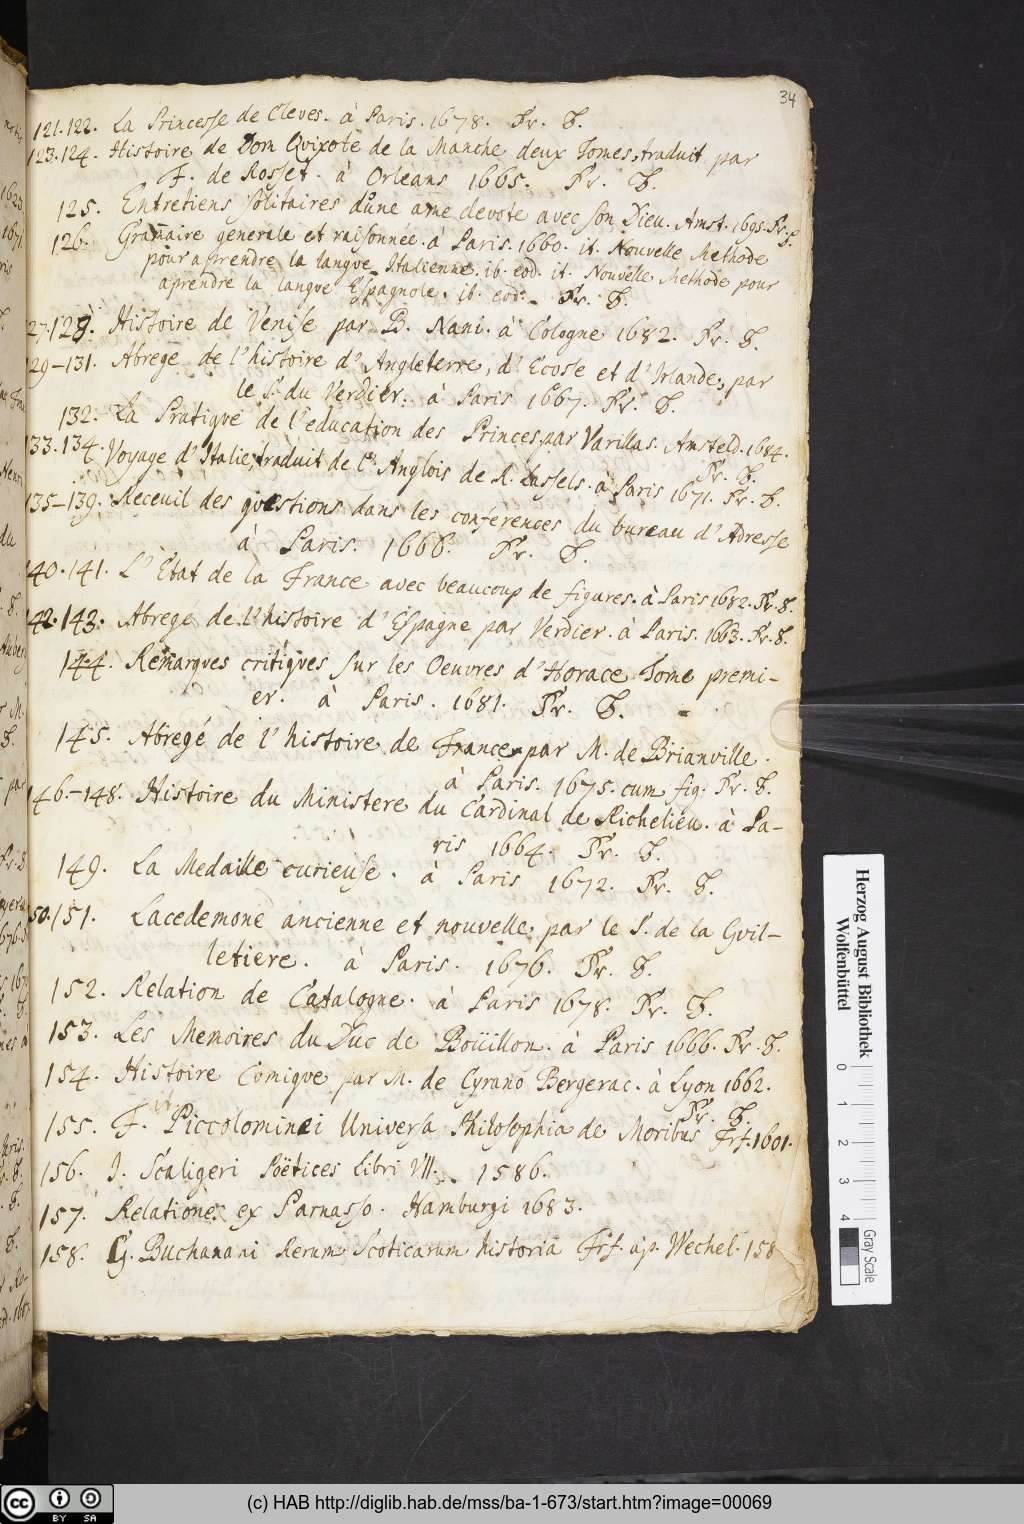 34
121.122. La Princesse de Cleves. à Paris. 1678. Fr. B.
123.124. Histoire de Dom Quixote de la Manche deux Tomes, traduit par
F. de Rosset. à Orleans 1665. Fr. B.
125. Entretiens solitaires d'une ame devote avec son Dieu. Amst. 1695. Fr. B.
126. Gram̄aire generale et raisonnée. à Paris. 1660. it. Nouvelle Methode
pour aprendre la langue Italienne. ib. eod. it. Nouvelle Methode pour
aprendre la langue Espagnole. ib. eod. Fr. B.
27.128. Histoire de Venise par B. Nani. à Cologne 1682. Fr. B.
129–131. Abregé de l'histoire d'Angleterre, d'Ecose et d'Irlande, par
le S. du Verdier. à Paris 1667. Fr. B.
132. La Pratique de l'education des Princes, par Varillas. Amsteld. 1684.
Fr. B.
133.134. Voyage d'Italie, traduit de l' Anglois de R. Lassels. à Paris 1671. Fr. B.
135–139. Receuil des questions dans les conferences du bureau d'Adresse
à Paris. 1666. Fr. B.
140.141. L'Etat de la France avec beaucoup de figures. à Paris 1682. Fr. B.
142.143. Abregé de l'histoire d'Espagne par Verdier. à Paris. 1663. Fr. B.
144. Remarques critiques sur les Oeuvres d'Horace Tome premi-
er. à Paris. 1681. Fr. B.
145. Abregé de l'histoire de France par M. de Brianville.
à Paris. 1675. cum fig. Fr. B.
146.–148. Histoire du Ministere du Cardinal de Richelieu. à Pa-
ris 1664. Fr. B.
149. La Medaille curieuse. à Paris 1672. Fr. B.
50.151. Lacedemone ancienne et nouvelle, par le S. de la Guil-
letiere. à Paris. 1676. Fr. B.
152. Relation de Catalogne. à Paris 1678. Fr. B.
153. Les Memoires du Duc de Boüillon. à Paris 1666. Fr. B.
154. Histoire Comique par M. de Cyrano Bergerac. à Lyon 1662.
Fr. B.
155. F. Piccolominei Universa Philosophia de Moribus Frf. 1601.
156. J. Scaligeri Poëtices libri VII. 1586.
157. Relationes ex Parnasso. Hamburgi 1683.
158. G. Buchanani Rerum Scoticarum historia Frf. ap. Wechel. 158
Herzog August Bibliothek
Wolfenbüttel
0 1 2 3 4
Gray Scale
(c) HAB http://diglib.hab.de/mss/ba-1-673/start.htm?image=00069
cc BY SA